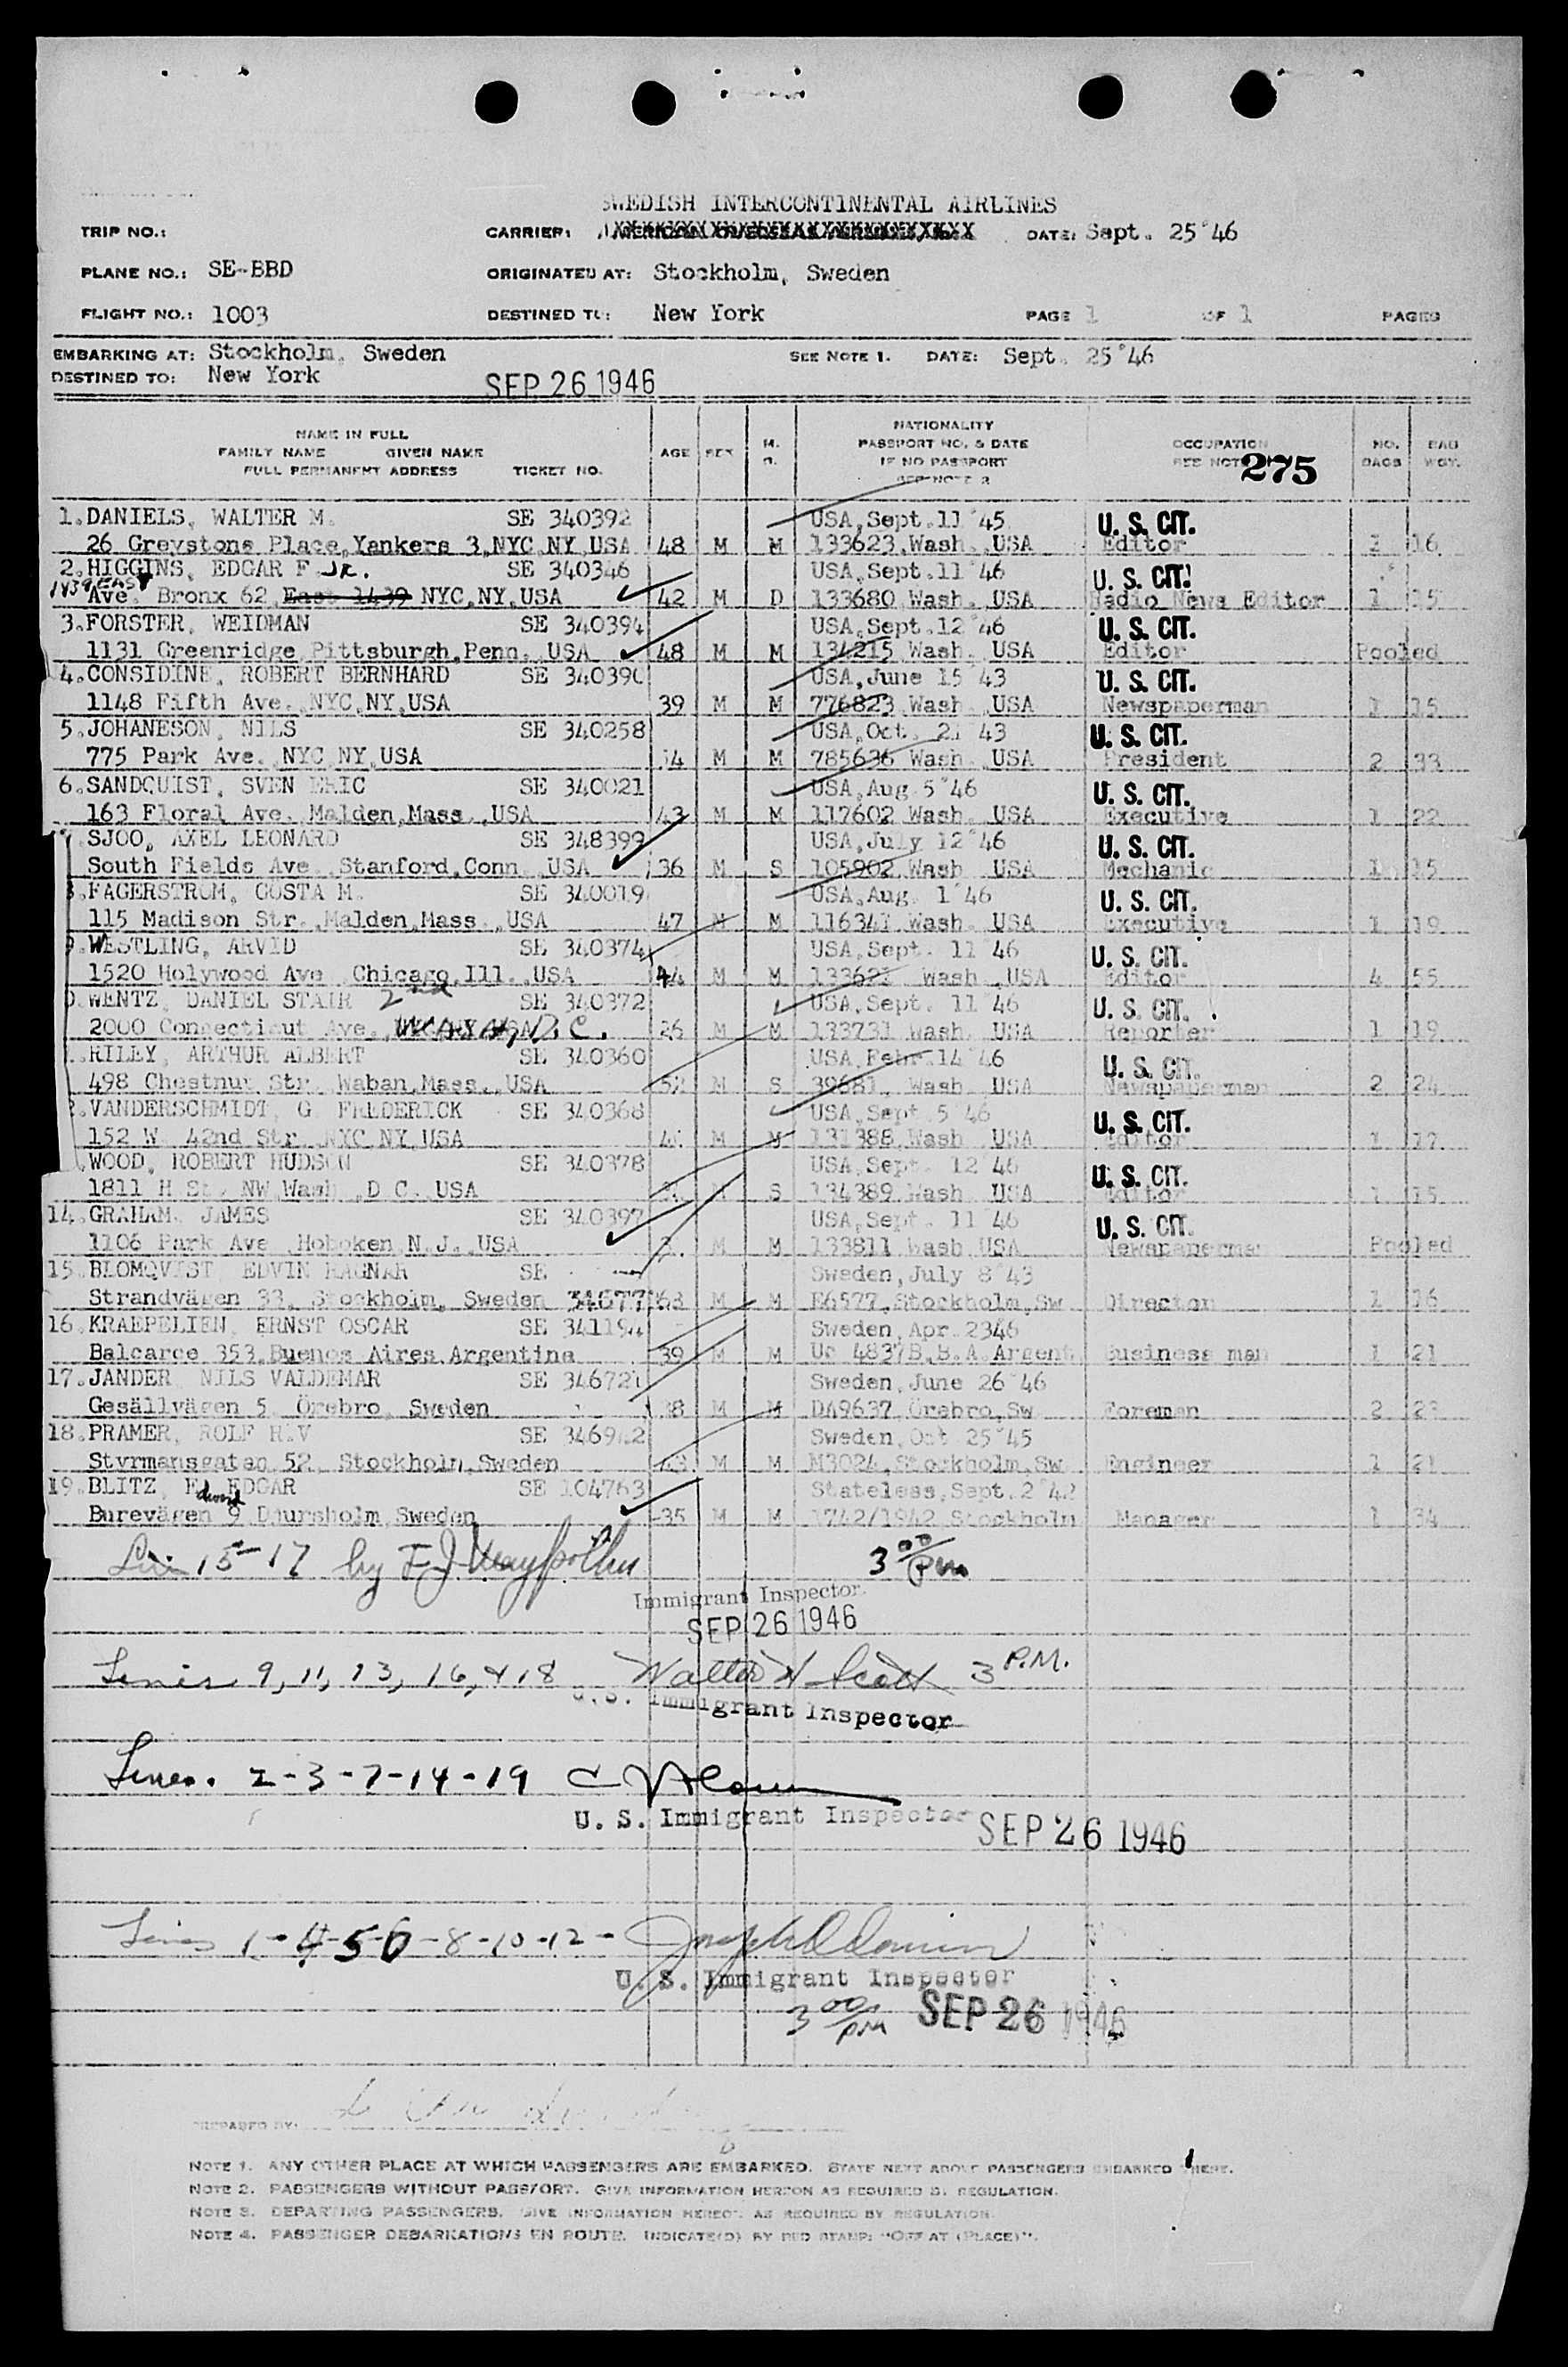 SWEDISH INTERCONTINENTAL AIRLINES
TRIP NO.: CARRIER: DATE: Sept. 25°46
PLANE NO.: SE-BBD ORIGINATED AT: Stockholm, Sweden
FLIGHT NO.: 1003 DESTINED TO: New York PAGE 1 OF 1 PAGES
EMBARKING AT: Stockholm, Sweden SEE NOTE 1. DATE: Sept. 25°46
DESTINED TO: New York SEP 26 1946
NAME IN FULL
FAMILY NAME GIVEN NAME
FULL PERMANENT ADDRESS TICKET NO.
AGE SEX M. NATIONALITY
PASSPORT NO. & DATE
IF NO PASSPORT
SEE NOTE 2
OCCUPATION
SEE NOTE 275
NO. BAGS BAG WGT.
1.DANIELS, WALTER M. SE 340392 USA,Sept.11°45 U. S. CIT.
26 Greystone Place,Yonkers 3,NYC,NY,USA 48 M M 133623,Wash.,USA Editor 1 16
2.HIGGINS, EDGAR F. JR. SE 340346 USA,Sept.11°46 U. S. CIT.
1439 EAST Ave. Bronx 62,East 1439 NYC,NY,USA 42 M D 133680,Wash. USA Radio News Editor 1 15
3.FORSTER, WEIDMAN SE 340394 USA,Sept.12°46 U. S. CIT.
1131 Greenridge,Pittsburgh,Penn. USA 48 M M 134215,Wash. USA Editor Pooled
4.CONSIDINE, ROBERT BERNHARD SE 340390 USA,June 15°43 U. S. CIT.
1148 Fifth Ave.,NYC,NY,USA 39 M M 776823,Wash.,USA Newspaperman 1 15
5.JOHANESON, NILS SE 340258 USA,Oct. 21°43 U. S. CIT.
775 Park Ave. NYC NY USA M M 785636 Wash. USA President 2 33
6.SANDQUIST, SVEN ERIC SE 340021 USA,Aug 5°46 U. S. CIT.
163 Floral Ave. Malden,Mass.,USA 43 M M 117602 Wash. USA Executive 1 22
SJOO, AXEL LEONARD SE 348399 USA,July 12°46 U. S. CIT.
South Fields Ave. Stanford,Conn. USA 36 M S 105902 Wash USA Mechanic 1 15
FAGERSTROM, GOSTA M. SE 340019 USA,Aug. 1°46 U. S. CIT.
115 Madison Str.,Malden,Mass.,USA 47 M M 116341 Wash. USA Executive 1 19
WESTLING, ARVID SE 340374 USA,Sept. 11°46 U. S. CIT.
1520 Holywood Ave. Chicago,Ill.,USA 44 M M Wash.,USA Editor 4 55
WENTZ, DANIEL STAIR 2nd SE 340372 USA,Sept. 11°46 U. S. CIT.
2000 Connecticut Ave. D.C. 26 M M 133731 Wash. USA Reporter 1 19
RILEY, ARTHUR ALBERT SE 340360 USA,Febr.14°46 U. S. CIT.
498 Chestnut Str. Waban,Mass.,USA 52 M S 39681, Wash USA Newspaperman 2 24
VANDERSCHMIDT, G. FREDERICK SE 340368 USA,Sept 5°46 U. S. CIT.
152 W. 42nd Str. NYC NY USA M M 131388,Wash USA Editor 1 17
WOOD, ROBERT HUDSON SE 340378 USA,Sept. 12°46 U. S. CIT.
1811 H St. NW Wash. D.C. USA M S 134389 Wash USA Editor 1 15
14.GRAHAM, JAMES SE 340397 USA,Sept. 11°46 U. S. CIT.
1106 Park Ave.,Hoboken,N.J. USA M M 133811 Wash USA Newspaperman Pooled
15.BLOMQVIST, EDVIN RAGNAR SE Sweden,July 8°43
Strandvägen 33, Stockholm, Sweden 34677 63 M M E6577,Stockholm,Sw Director 1 16
16.KRAEPELIEN, ERNST OSCAR SE 341194 Sweden,Apr.2346
Balcarce 353,Buenos Aires,Argentina 39 M M Uc 4837B,B.A.Argent. Business man 1 21
17.JANDER, NILS VALDEMAR SE 346721 Sweden,June 26°46
Gesällvägen 5, Örebro, Sweden 38 M M DA9637,Orebro,Sw Foreman 2 23
18.PRAMER, ROLF H.V SE Sweden,Oct 25°45
Styrmansgatan 52, Stockholm,Sweden 43 M M M3024,Stockholm,Sw Engineer 1 21
19.BLITZ, Edward EDGAR SE 104763 Stateless,Sept.2°42
Burevägen 9 Djursholm,Sweden 35 M M 1742/1942 Stockholm Manager 1 34
15-17 by F J 3 00 PM
Immigrant Inspector
SEP 26 1946
Lines 9, 11, 13, 16, & 18 Walter H Scott 3 P.M.
U.S. Immigrant Inspector
Lines. 2-3-7-14-19
U. S. Immigrant Inspector SEP 26 1946
Lines 1-4-5-6-8-10-12- Joseph
U. S. Immigrant Inspector
3 00 PM SEP 26 1946
PREPARED BY:
NOTE 1. ANY OTHER PLACE AT WHICH PASSENGERS ARE EMBARKED. STATE NEXT ABOVE PASSENGERS EMBARKED THERE.
NOTE 2. PASSENGERS WITHOUT PASSPORT. GIVE INFORMATION HEREON AS REQUIRED BY REGULATION.
NOTE 3. DEPARTING PASSENGERS. GIVE INFORMATION HEREON AS REQUIRED BY REGULATION.
NOTE 4. PASSENGER DEBARKATIONS EN ROUTE. INDICATE(D) BY RED STAMP: "OFF AT (PLACE)".